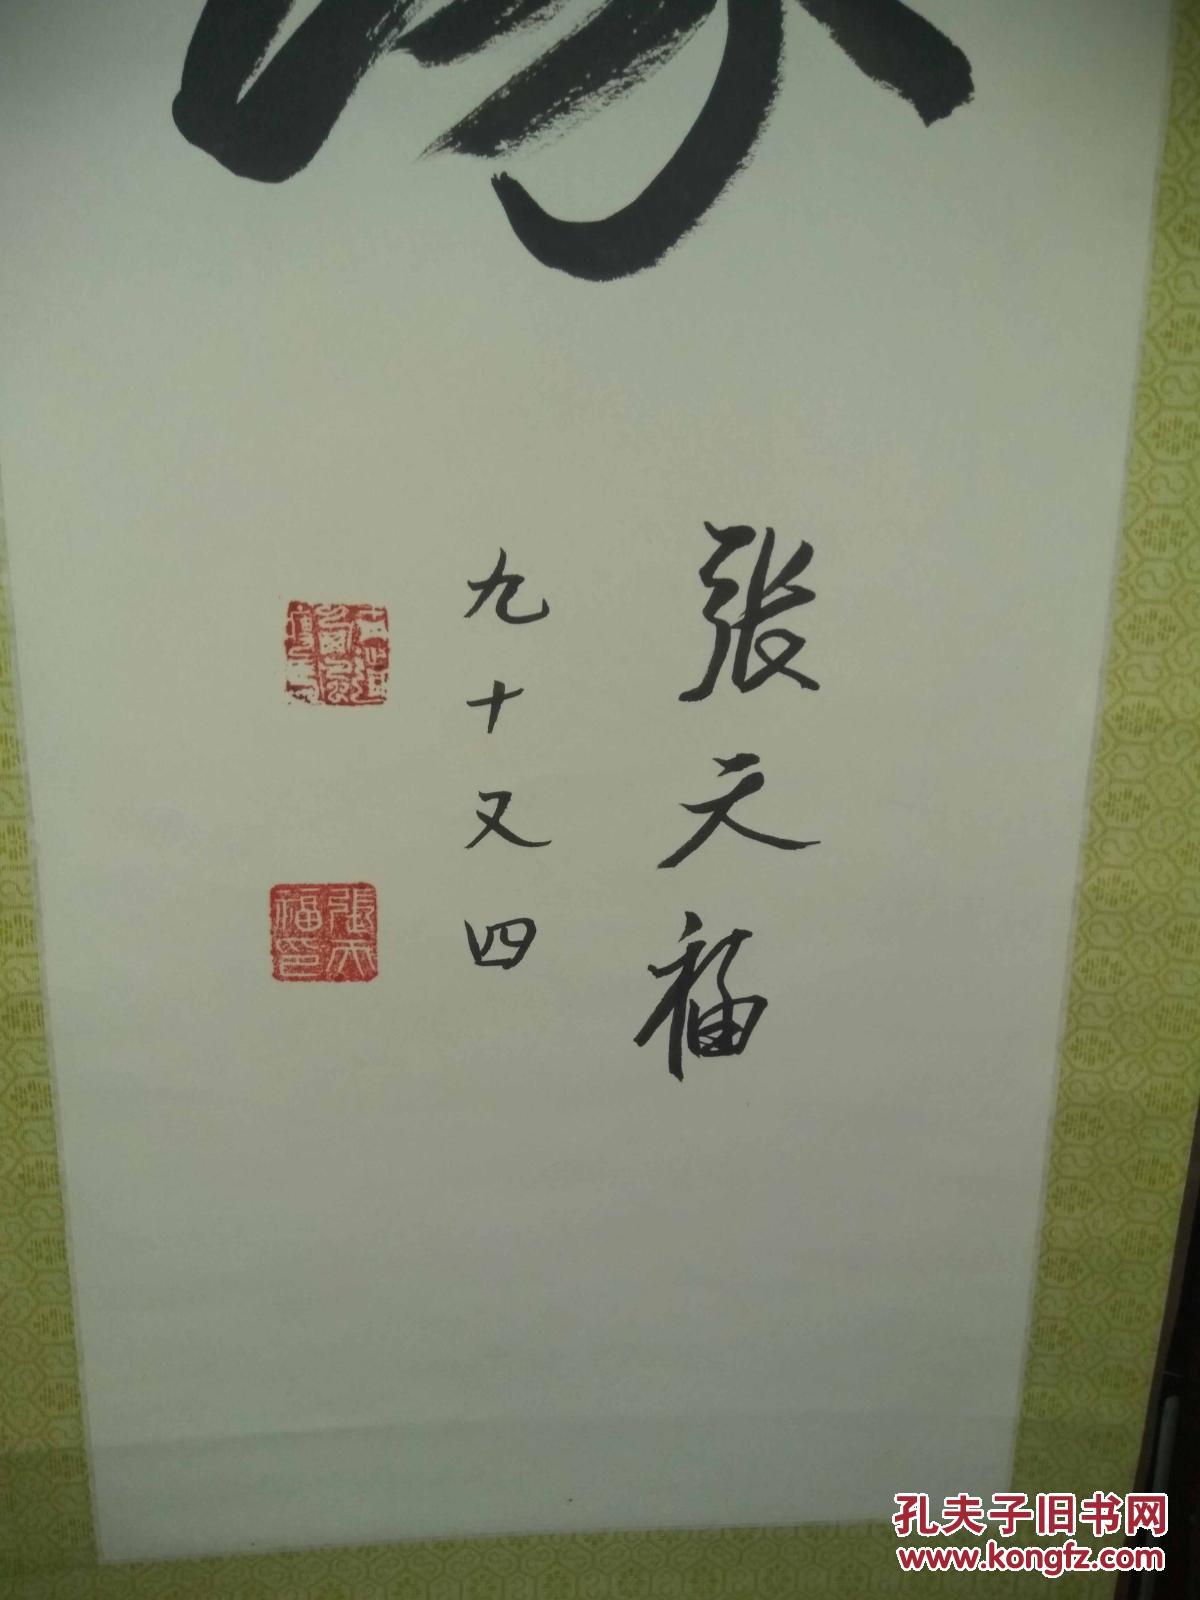 张天福
九十又四
張天
福印
孔夫子旧书网
www.kongfz.com